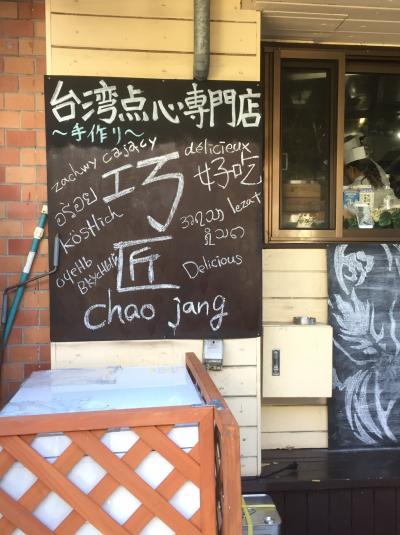 台湾点心専門店
～手作り～
zachwycający
délicieux
อร่อย
巧
好吃
köstlich
lezat
очень
вкусный
匠
Delicious
chao jang